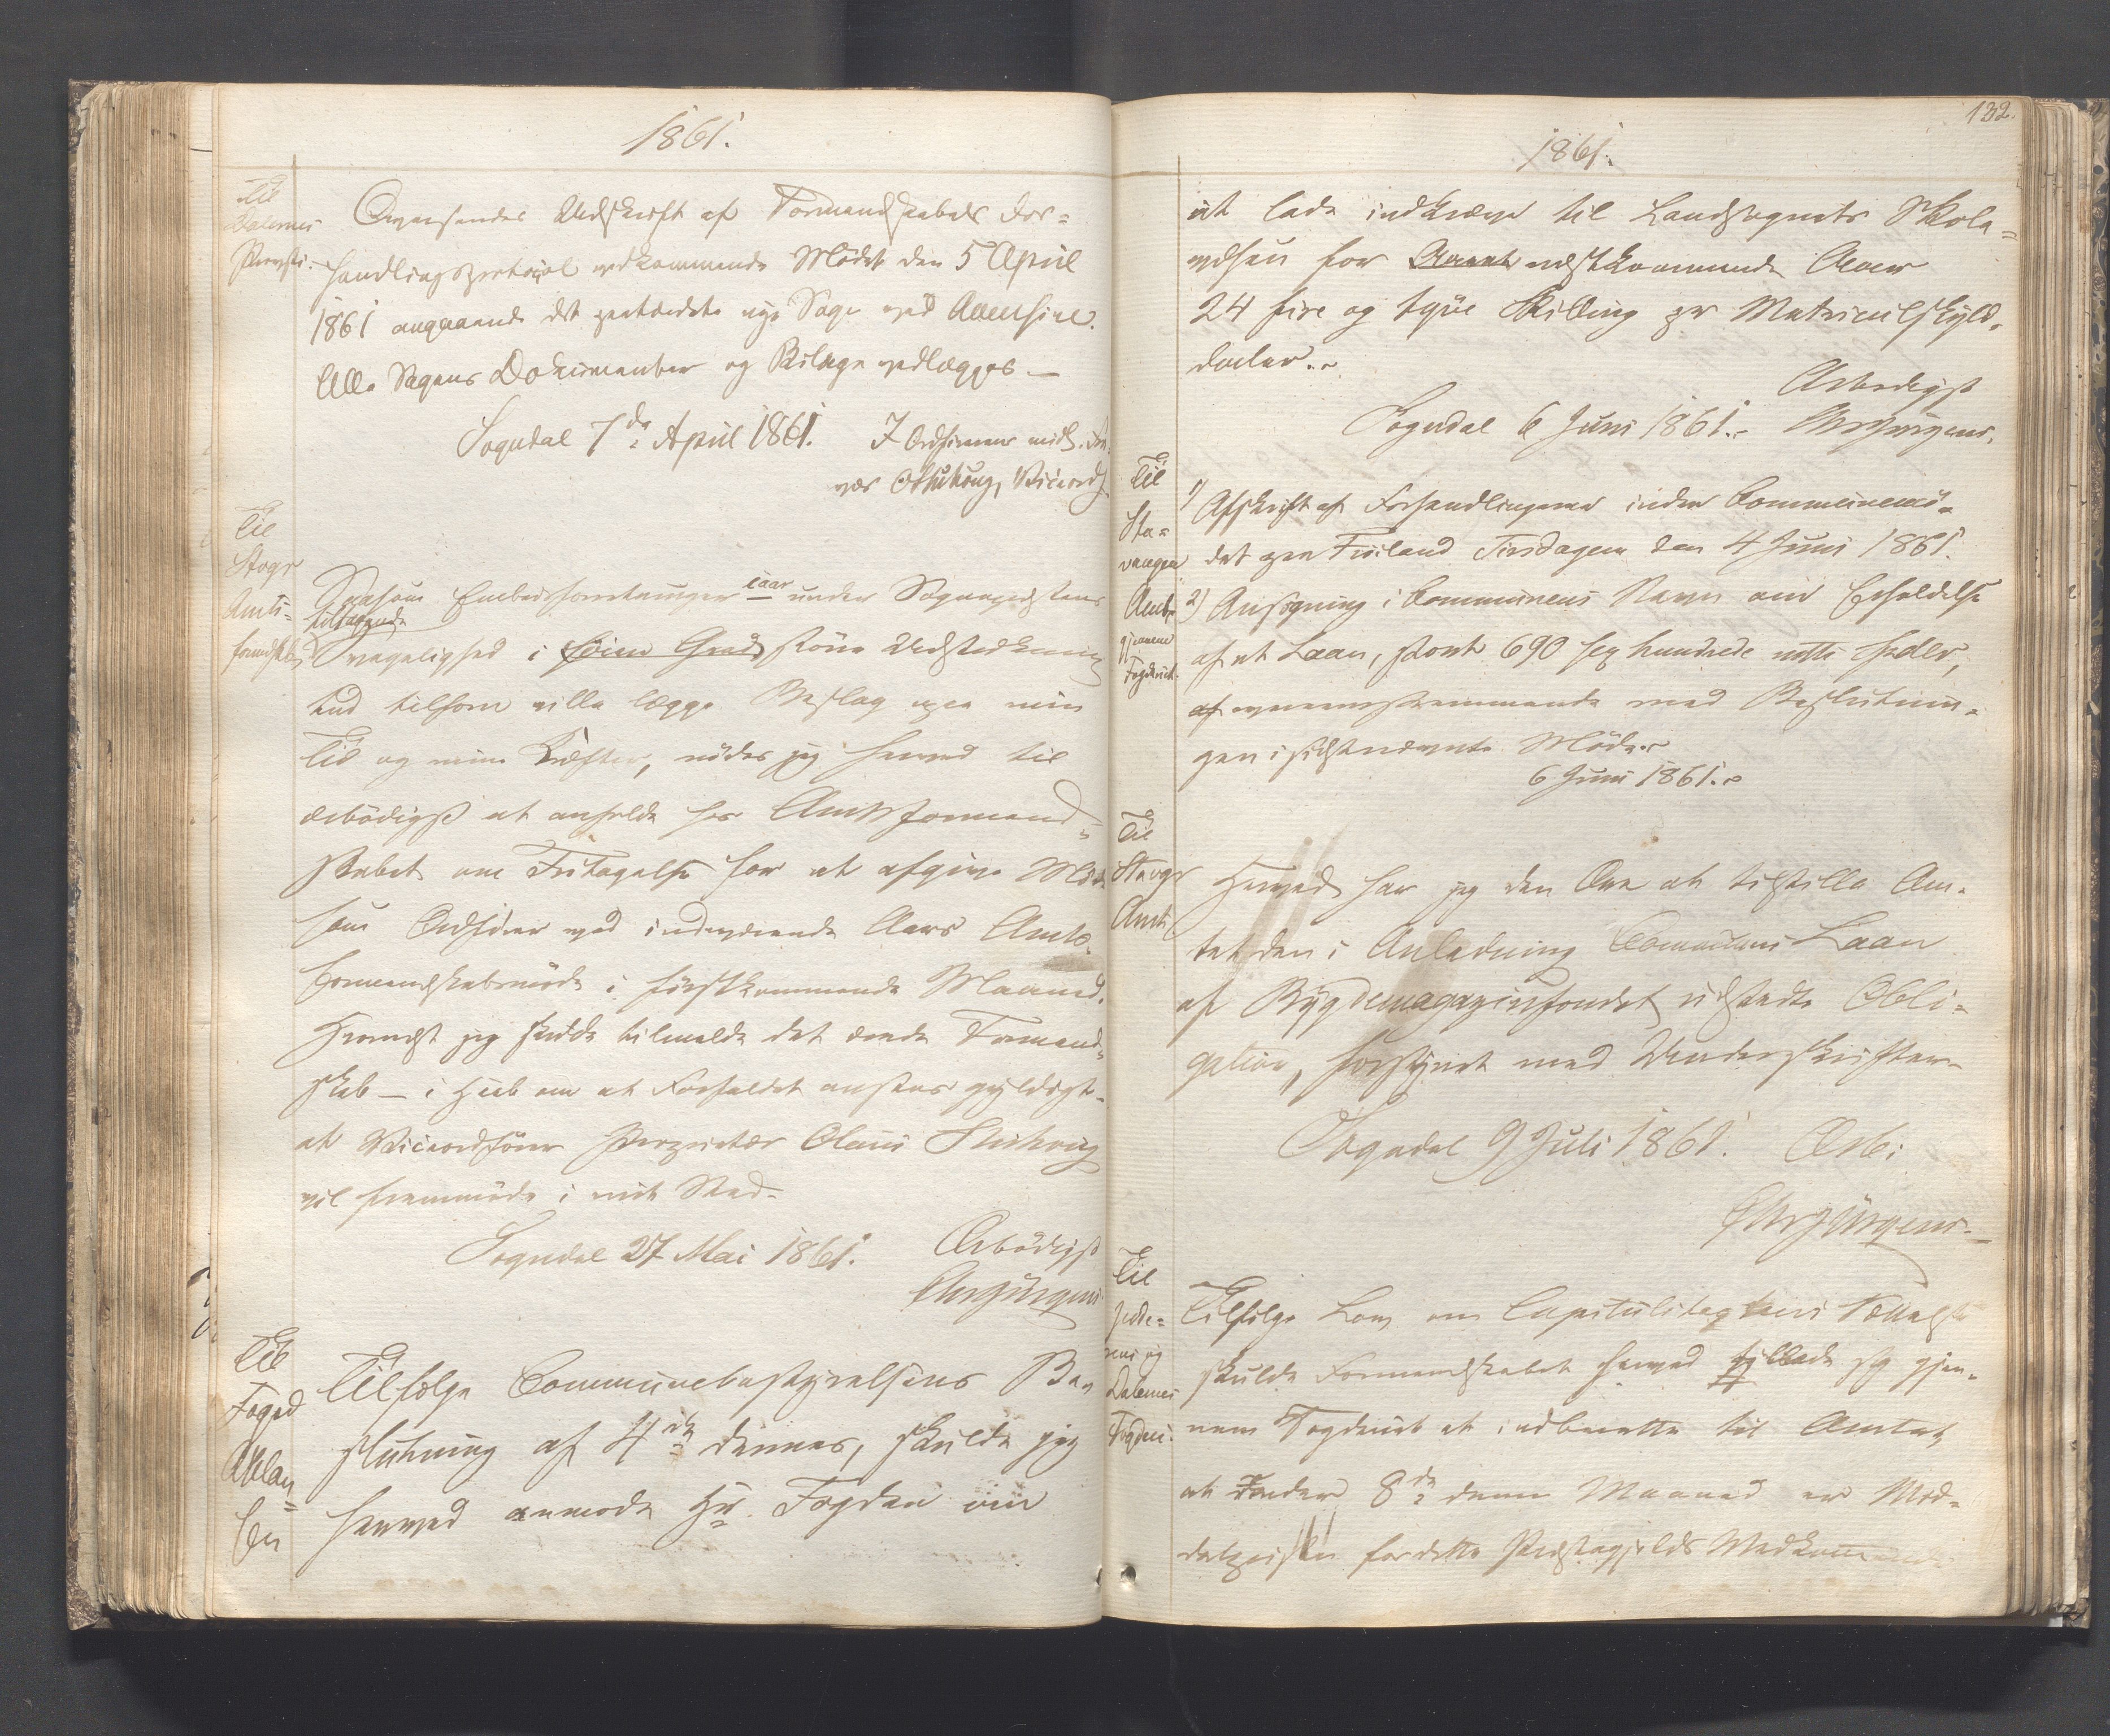 1861.
Til
Dalernes
Provsti.
Oversendes Udskrift af Formandskabets For=
handlingsprotocol vedkommende Mødet den 5 April
1861 angaaende det paatænkte nye Sogn ved Aaensire.
Alle Sagens Documenter og Bilage vedlægges —
Sogndal 7de April 1861. I Ordførerens midl. Fra-
vær OStuhoug, Viceord.
Til
Stavgr
Amts=
formdskb
Saasom Embedsforretninger iaar under Sognepræstens
tilstødende
Svagelighed i høiere Grad større Udstrækning
end tilforn ville lægge Beslag paa min
Tid og mine Kræfter, nødes jeg herved til
ærbødigst at anholde hos Amtsformand=
skabet om Fritagelse for at afgive Møde
som Ordfører ved indeværende Aars Amts=
formandskabsmøde i førstkommende Maaned.
Hvornæst jeg skulde tilmelde det ærede Formand=
skab — i Haab om at Forfaldet ansees gyldigt —
at Viceordfører Proprietær Olaus Stuhoug
vil fremmøde i mit Sted.
Sogndal 27 Mai 1861. Ærbødigst
ChrJürgens
Til
Foged
Aklan
sen
Tilfølge Communebestyrelsens Be=
slutning af 4de dennes, skulde jeg
herved anmode Hr. Fogden om
132.
1861.
at lade indkræve til Landsognets Skole=
væsen for Aaret næstkommende Aar
24 fire og tyve Skilling pr Matriculskyld=
daler.
Ærbødigst
Sogndal 6 Juni 1861. ChrJürgens.
Til
Sta=
vanger
Amt
gjennem
Fogderiet.
1) Afskrift af Forhandlingerne under Communemø=
det paa Fuiland Tirsdagen den 4 Juni 1861.
2) Ansøgning i Communens Navn om Erholdelse
af et Laan, stort 690 sex hundrede nitti Spdlr,
af overeensstemmende med Beslutnin=
gen i sidstnævnte Møde.
6 Juni 1861.
Til
Stavgr
Amt
Herved har jeg den Ære at tilstille Am=
tet den i Anledning Communens Laan
af Bygdemagazinfondet udstedte Obli=
gation, forsynet med Underskrifter.
Sogndal 9 Juli 1861. Ærb:
ChrJürgens.
Til
Jedde=
rens og
Dalernes
Fogderi.
Tilfølge Lov om Capitulstaxtens Sættelse
skulde Formandskabet herved tillade sig gjen=
nem Fogderiet at indberette til Amtet,
at under 8de denne Maaned er Mid=
delprisen for dette Præstegjelds Vedkommende